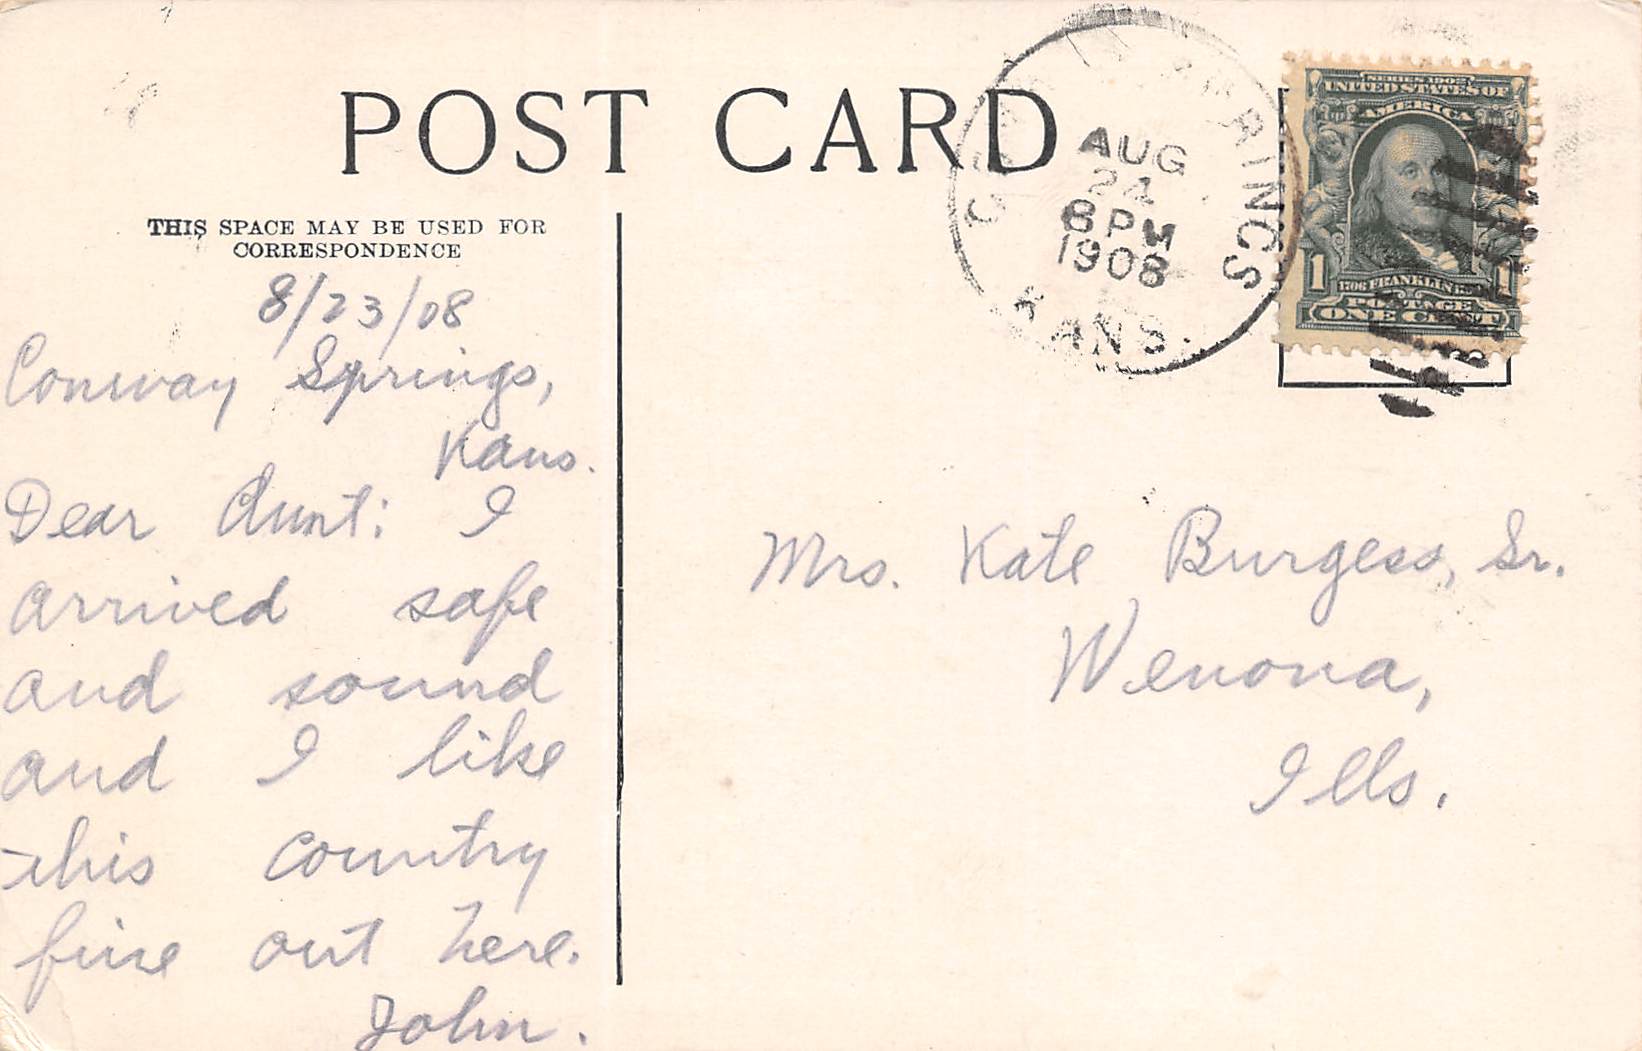 POST CARD
THIS SPACE MAY BE USED FOR
CORRESPONDENCE
8/23/08
Conway Springs,
Kans.
Dear Aunt: I
arrived safe
and sound
and I like
this country
fine out here.
John.
SPRINGS
AUG
24
8 PM
1908
KANS.
SERIES 1902
UNITED STATES OF
AMERICA
1 1
1706 FRANKLIN
POSTAGE
ONE CENT
Mrs. Kate Burgess, Sr.
Wenona,
Ills.